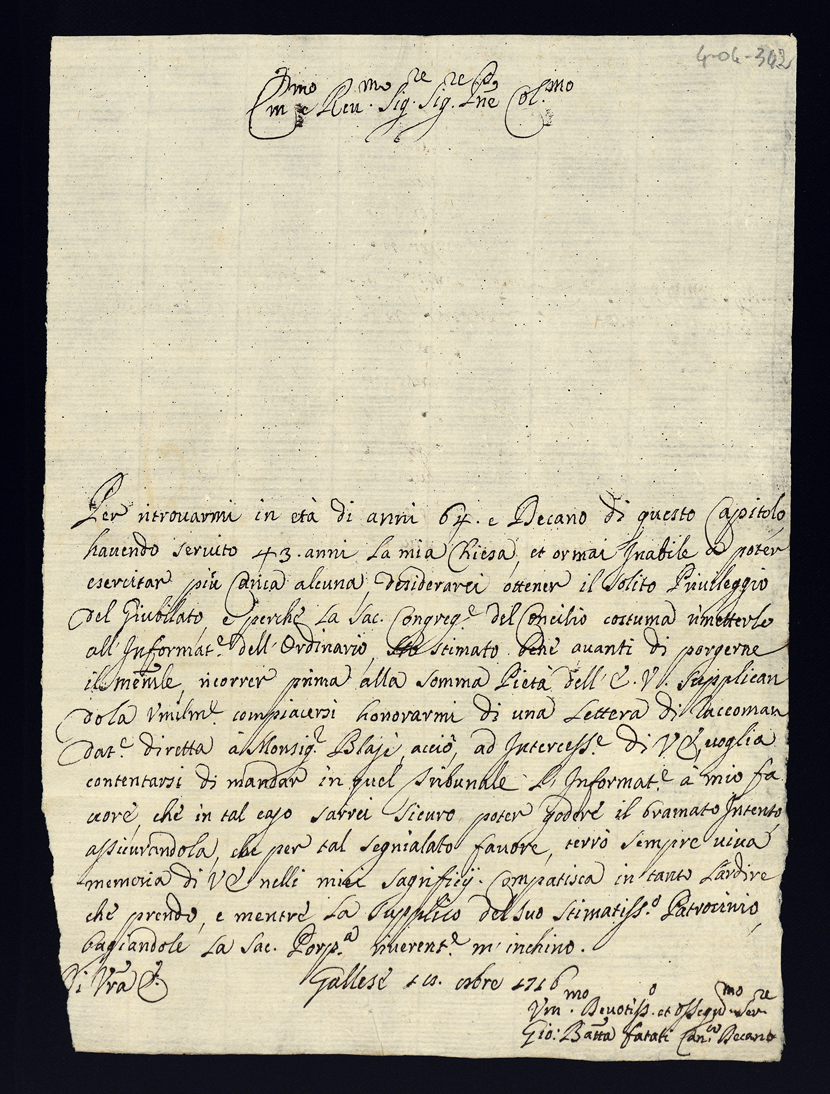 4-04-342
Em.mo e Reu.mo Sig.re Sig.re P.ne Col.mo
Per ritrouarmi in età di anni 64. e Decano di questo Capitolo
hauendo seruito 43. anni la mia Chiesa, et ormai Inabile a poter
esercitar più carica alcuna, desiderarei ottener il solito Priuileggio
del Giubilato, e perche la Sac. Congreg.e del Concilio costuma rimetterle
all'Informat.e dell'Ordinario, stimato bene auanti di porgerne
il memle, ricorrer prima alla somma Pietà dell'E. V. supplican
dola Vmilm.e compiacersi honorarmi di una Lettera di raccoman
dat.e diretta à Monsig.r Blasi, acciò, ad Intercess.e di VE, voglia
contentarsi di mandar in quel Tribunale l'Informat.e a mio fa
uore che in tal caso sarrei sicuro poter godere il bramato Intento
assicurandola, che per tal segnialato fauore, terrò sempre uiua
memoria di VE nelli miei sagrificij. Compatisca in tanto l'ardire
che prendo, e mentre la supplico del suo stimatiss.o Patrocinio,
bagiandole la Sac. Porp.a riuerent.e m'inchino.
Di Vra E. Gallese 8bre 1716
Vm.mo Deuotiss.o et osseq.mo Ser.re
Gio: Batta fatati Can.co Decano